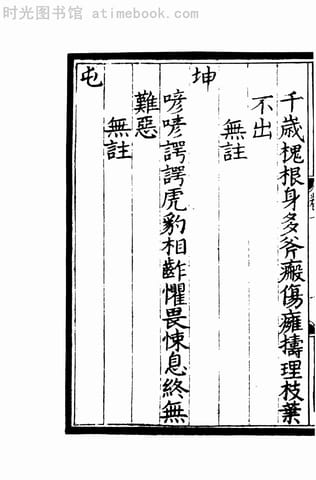 时光图书馆 - atimebook.com
千歲槐根身多斧瘢傷癰擣理枝葉
不出
無註
坤
喭喭諤諤虎豹相齚懼畏悚息終無
難惡
無註
屯